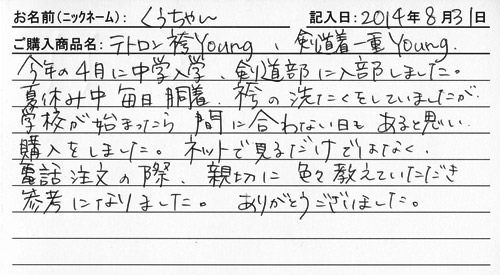 お名前(ニックネーム): くぅちゃん 記入日:2014年8月31日
ご購入商品名: テトロン袴Young、剣道着一重Young.
今年の4月に中学入学、剣道部に入部しました。
夏休み中 毎日 胴着、袴の洗たくをしていましたが
学校が始まったら 間に合わない日も あると思い
購入をしました。ネットで見るだけではなく、
電話注文の際、親切に色々教えていただき
参考になりました。 ありがとうございました。